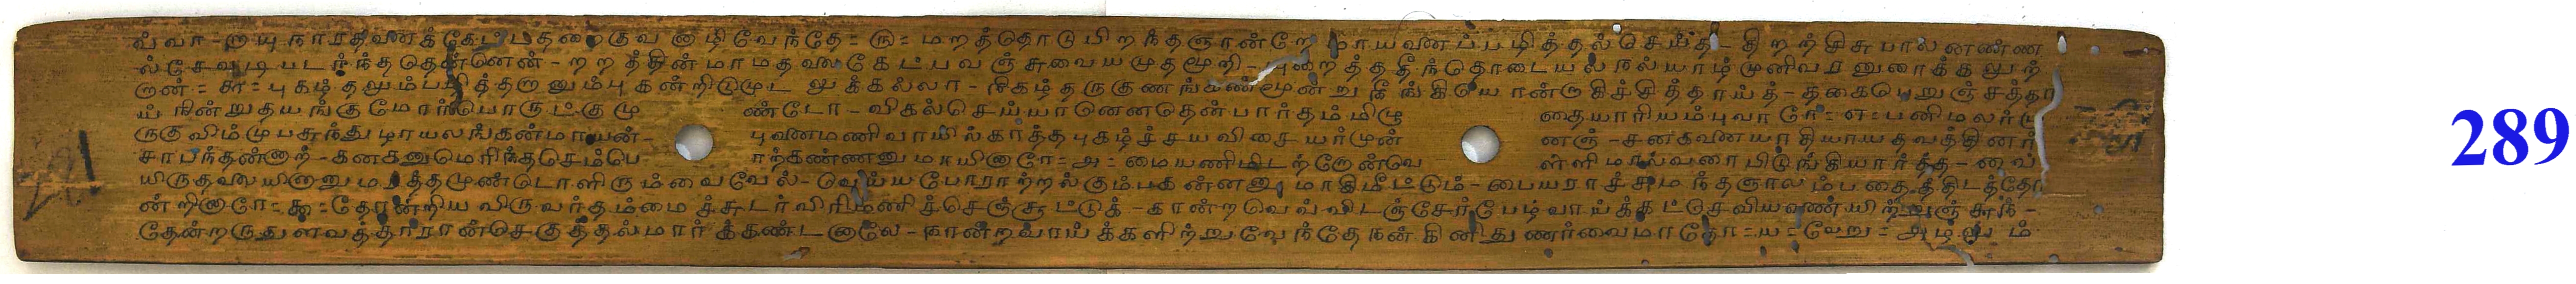 வ்வா - றுயுநாரதிவனக்கேட்பதறைகுவனுழிவேந்தே = ரு = மறத்தொடுபிறந்தஞான்றே மாயவனப்பழித்தல்செய்த திறற்சிசுபாலனண்ண
ல்சேவடிபடர்ந்ததென்னென் - றறத்தின்மாமதலைகேட்பவஞ்சுவையமுதமூறி - புறத்ததீந்தொடையல்நல்யாழ்முனிவரனுரைக்கலுற்
றன் = சு = புகழ்தலும்பழித்தறனும்புகன்றிடுமுடலுக்கல்லா - நிகழ்தருகுணங்கண்மூன்றுநீங்கியொன்ருகிச்சித்தாய்த் - தகைபெறுஞ்சத்தா
ய்நின்றுதயங்குமோர்பொருட்குமு ண்டோ - விகல்செய்யாரெனனதென்பார்தம்மிழு தையாரியம்புவாரோ = எ = பனிமலர்மு
ருகுவிம்முபசுந்துழாயலங்கன்மாயன் - புவனமணிவாயில்காத்தபுகழ்ச்சயவிசையர்முன் னஞ் - சனகவனயாதியாயதவத்தினர்
சாபந்தன்னாற் - கனகனுமெரிந்தசெம்பெ ாற்கண்ணனுமாயினாரே = அ = மையணிமிடற்றேண்டுவ ள்ளிமால்வரையிடுங்கியார்த்த - வைவ
யிருதலையினானுமரத்தமுண்டொளிரும்வைவேல் - வெய்யபோராற்றல்கும்பகன்னனுமாகிமீட்டும் - பையராச்சுமந்தஞாலம்பதைத்திடத்தோ
ன்றினாரே = கூ = தோன்றியவிருவர்தம்மைச்சுடர்விரிமணிச்செஞ்சூட்டுக் - கான்றவெவ்விடஞ்சேர்பேழ்வாய்க்கட்செவியவண்யிற்றுஞ்சுந் -
தேன்றருதுளவத்தாரான்செகுத்தல்மார்க்கண்டனாலே - நான்றவாய்க்களிற்றுவேந்தேநன்கினிதுணர்வைமாதோ = ய = வேறு = அழலும்
289